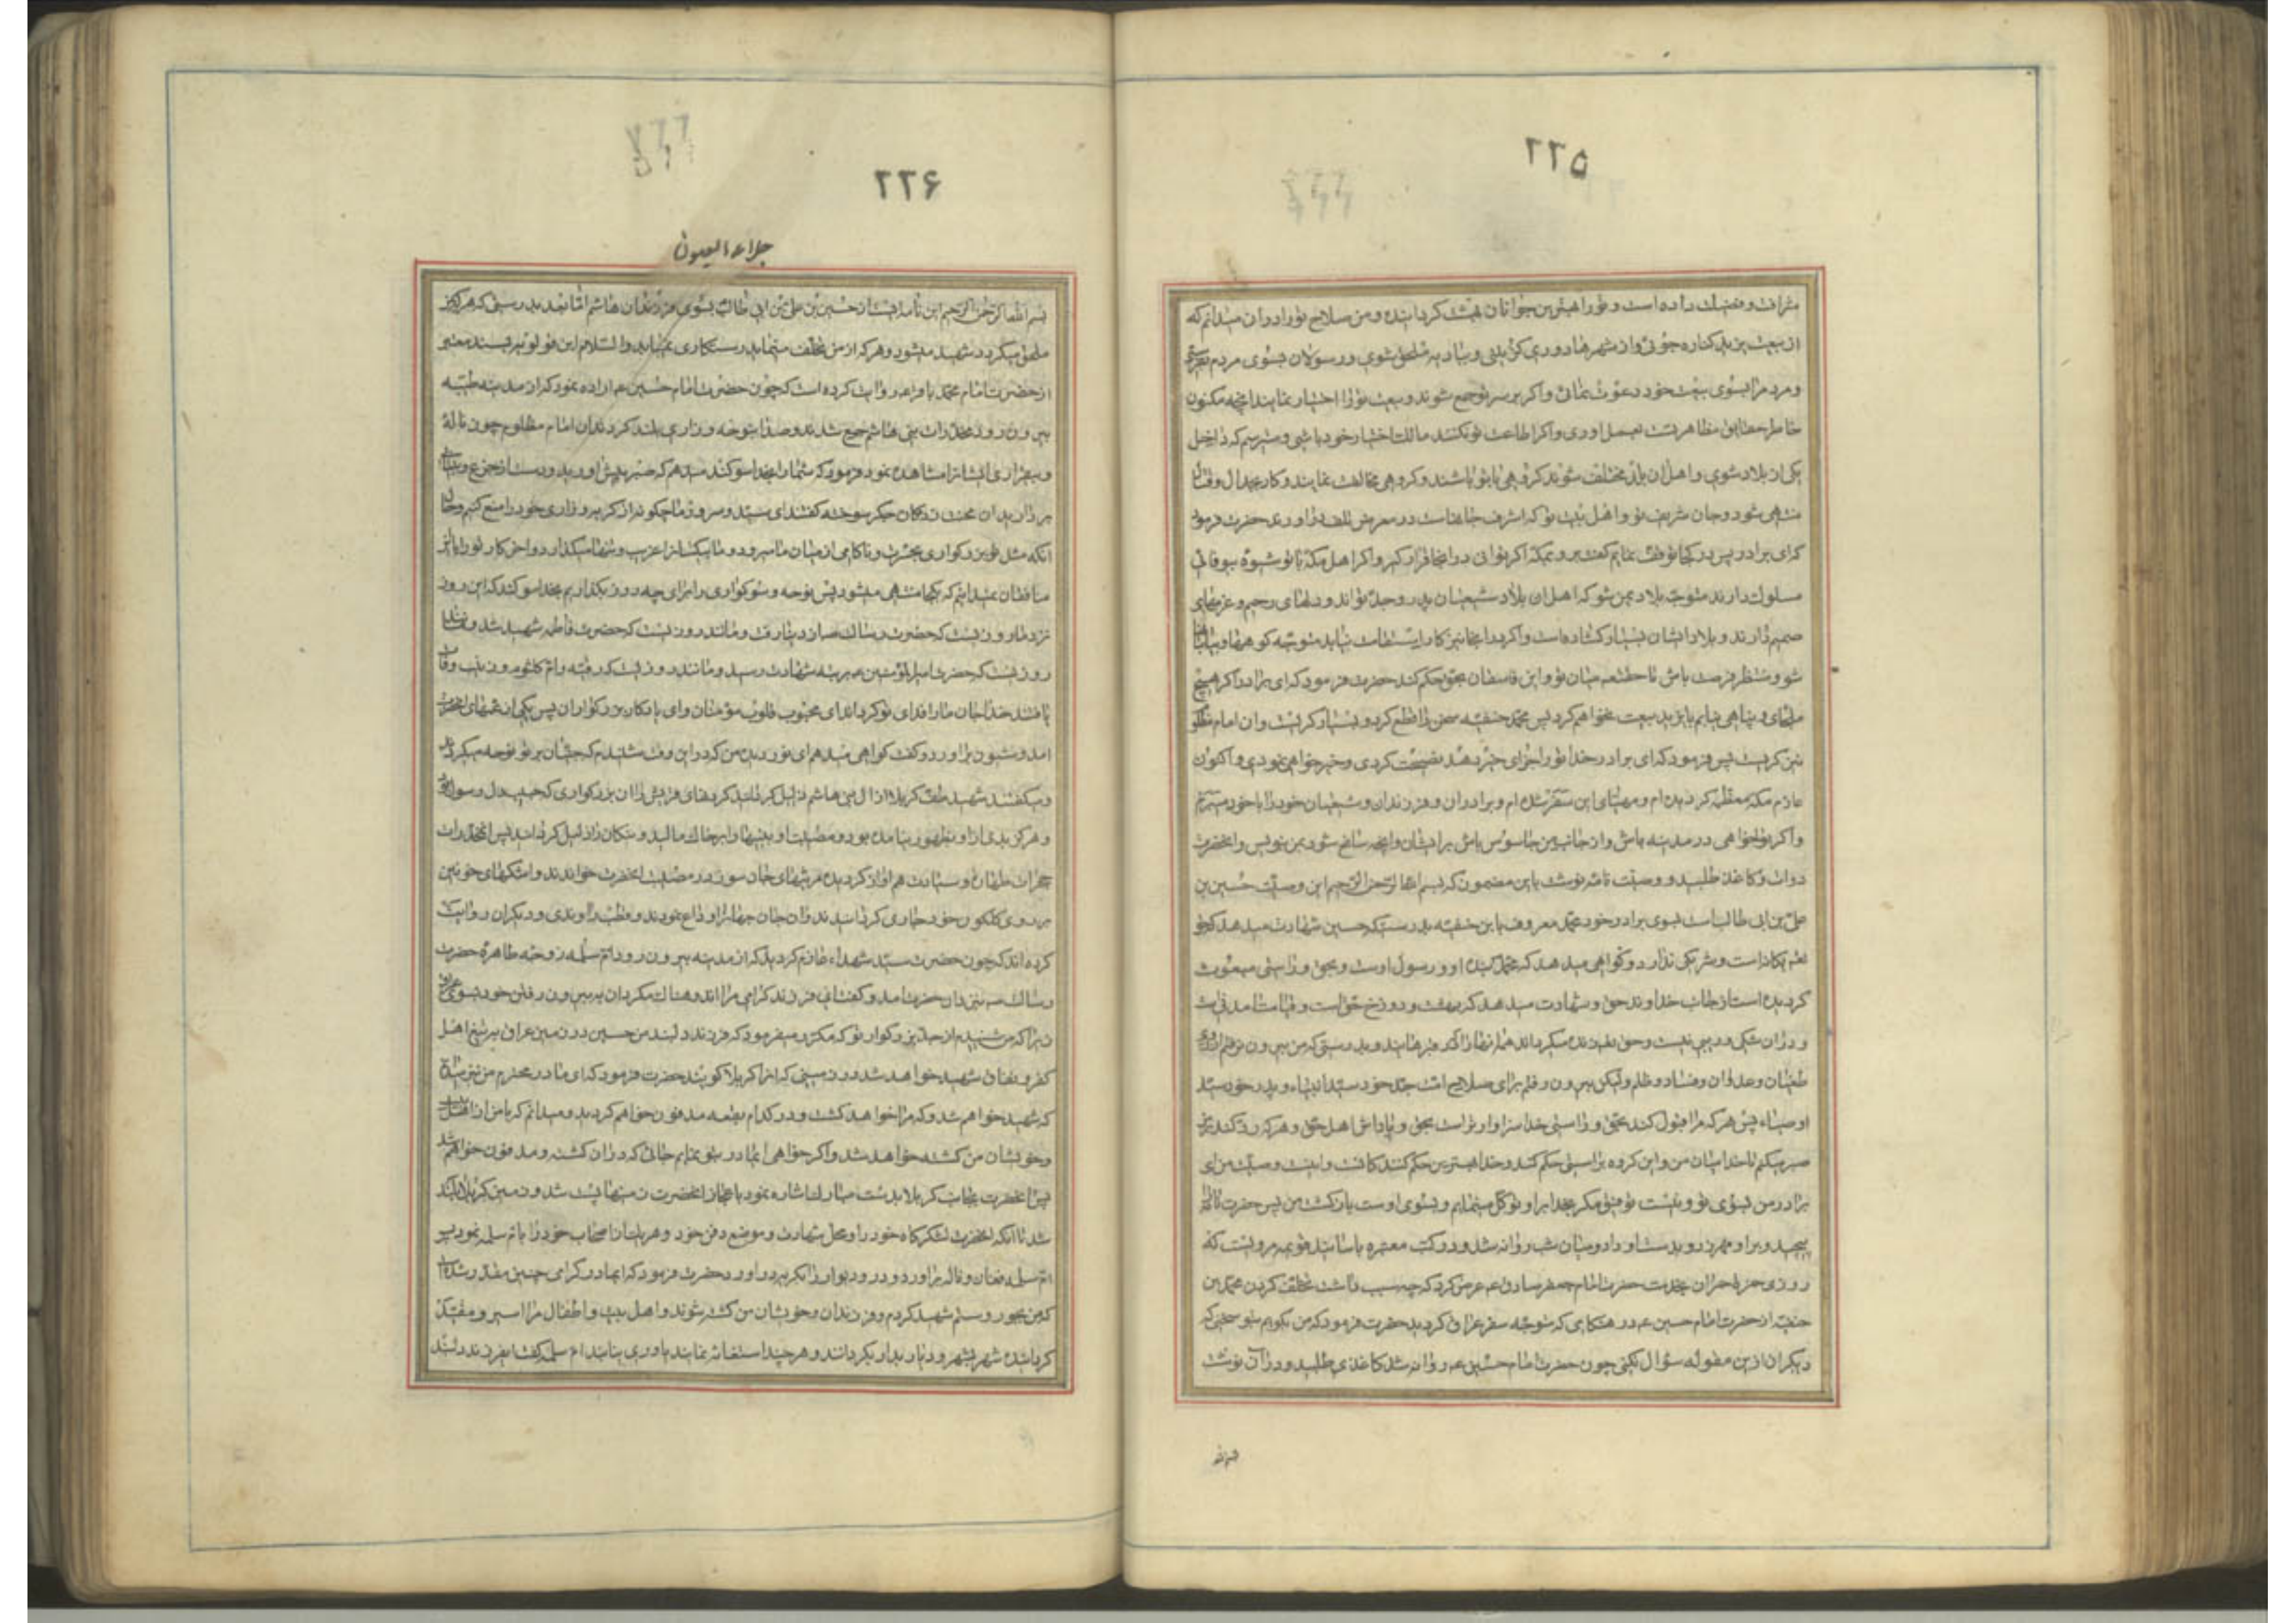 ۲۲۵
شرافت و فضیلت داده است و تو را بهترین جوانان بهشت گردانیده و من صلاح تو را در آن میدانم که
از بیعت یزید کناره جوئی و از شهرها دوری گزینی و ببادیه ملحق شوی و رسولان بسوی مردم
و مردم را بسوی بیعت خود دعوت نمائی و اگر بر سر تو جمع شوند و بیعت تو را اختیار نمایند آنچه مکنون
خاطر مظاهرت بعمل آوری و اگر اطاعت تو نکنند مالک اختیار خود باشی و میترسم که داخل
یکی از بلاد شوی و اهل آن بلد مختلف شوند گروهی با تو باشند و گروهی مخالفت نمایند و کار بجدال و قتال
منتهی شود و جان شریف تو و اهل بیت تو که اشرف جانهاست در معرض تلف درآورند حضرت فرمود
که ای برادر پس در کجا توقف نمایم گفت برو بمکه اگر توانی در آنجا قرار گیر و اگر اهل مکه با تو شیوه بیوفائی
مسلوک دارند متوجه بلاد یمن شو که اهل آن بلاد شیعیان پدر و جد تواند و دلهای رحیم و عزمهای
صمیم دارند و بلاد ایشان بسیار گشاده است و اگر در آنجا نیز کار استقامت نیابد متوجه کوهها و بیابانها
شو و منتظر فرصت باش تا حقتعالی میان تو و این فاسقان بحق حکم کند حضرت فرمود که ای برادر اگر هیچ
ملجای و پناهی نیابم با یزید بیعت نخواهم کرد پس محمد حنفیه سخن را قطع کرد و بسیار گریست و آن امام مظلوم
نیز گریست پس فرمود که ای برادر خدا تو را جزای خیر دهد نصیحت کردی و خیرخواهی نمودی و اکنون
عازم مکه معظمه گردیده ام و مهیای این سفر شده ام و برادران و فرزندان و شیعیان خود را با خود میبرم
و اگر تو خواهی در مدینه باش و از جانب من جاسوس باش بر ایشان و آنچه سانح شود بمن بنویس و آنحضرت
دوات و کاغذ طلبید و وصیت نامه نوشت باین مضمون که بسم الله الرحمن الرحیم این وصیت حسین بن
علی بن ابی طالب است بسوی برادر خود محمد معروف بابن حنفیه بدرستیکه حسین شهادت میدهد که خدا
یکانه است و شریکی ندارد و گواهی میدهد که محمد بنده او و رسول اوست و بحق و راستی مبعوث
گردیده است از جانب خداوند حق و شهادت میدهد که بهشت و دوزخ حق است و قیامت آمدنی است
و در آن شکی و ریبی نیست و حق تعالی زنده میگرداند همه آنها را که در قبرهایند و بدرستیکه من بیرون نرفتم از روی
طغیان و عدوان و فساد و ظلم ولیکن بیرون رفتم برای صلاح امت جد خود سید انبیاء و پدر خود سید
اوصیاء پس هر که مرا قبول کند بحق و راستی خدا سزاوارتر است بحق و پاداش اهل حق و هر که رد کند بر من
صبر میکنم تا خدا میان من و این گروه براستی حکم کند و خدا بهترین حکم کنندگانست و اینست وصیت من ای
برادر من بسوی تو و نیست توفیق مگر بخدا بر او توکل مینمایم و بسوی اوست بازگشت من پس حضرت نامه را
پیچید و بر او مهر زد و بدست او داد و میان شب روانه شد و در کتب معتبره باسانید قویه مرویست که
روزی حمزة بن حمران بخدمت حضرت امام جعفر صادق ع عرض کرد که چه سبب داشت تخلف کردن محمد بن
حنفیه از حضرت امام حسین ع در هنگامی که متوجه سفر عراق گردید حضرت فرمود که من بگویم بتو سخنی که
دیگر از این مقوله سؤال نکنی چون حضرت امام حسین ع روانه شد کاغذی طلبید و در آن نوشت
۲۲۶
جلاء العیون
بسم الله الرحمن الرحیم این نامه ایست از حسین بن علی بن ابی طالب بسوی فرزندان هاشم اما بعد بدرستیکه هر که بمن
ملحق میگردد شهید میشود و هر که از من تخلف مینماید رستکاری نمییابد والسلام ابن قولویه بسند معتبر
از حضرت امام محمد باقر ع روایت کرده است که چون حضرت امام حسین ع اراده نمود که از مدینه طیبه
بیرون رود مخدرات بنی هاشم جمع شدند و صدا بنوحه و زاری بلند کردند آن امام مظلوم چون ناله
و بیقراری ایشانرا مشاهده نمود فرمود که شما را بخدا سوگند میدهم که صبر پیش آورید و دست از جزع و بیتابی
بردارید آن محنت زدگان جگر سوخته گفتند ای سید و سرور ما چگونه از گریه و زاری خود را منع کنیم و حال
آنکه مثل تو بزرگواری بحسرت و ناکامی از میان ما میرود و ما بیکسانرا غریب و تنها میگذارد و آخر کار تو را با این
منافقان نمیدانیم که بکجا منتهی میشود پس نوحه و سوگواری را برای چه روز بگذاریم بخدا سوگند که این روز
نزد ما روزیست که حضرت رسالت از دنیا رفت و مانند روزیست که حضرت فاطمه شهید شد و مانند
روزیست که حضرت امیرالمؤمنین ع برتبه شهادت رسید و مانند روزیست که رقیه و ام کلثوم و زینب وفات
یافتند خدا جان ما را فدای تو گرداند ای محبوب قلوب مؤمنان و ای یادگار بزرگواران پس یکی از عمه‌های آنحضرت
آمد و شیون برآورد و گفت گواهی میدهم ای نور دیده من که در این وقت شنیدم که جنیان بر تو نوحه میکردند
و میگفتند شهید طف کربلا از آل بنی هاشم ذلیل گردانید گردنهای قریش را آن بزرگواری که حبیب دل رسول بود
و هرگز بدی از او بظهور نیامده بود و مصیبت او بینیها را بر خاک مالید و نیکان را ذلیل گردانید پس مخدرات
حجرات طهارت و سیادت هم آواز گردیده مرثیهای جان سوز در مصیبت آنحضرت خواندند و اشکهای خونین
بر روی گلگون خود جاری گردانیدند و آن جان جهانرا وداع نمودند و قطب راوندی و دیگران روایت
کرده اند که چون حضرت سید شهداء عازم گردید که از مدینه بیرون رود ام سلمه زوجه طاهره حضرت
رسالت بنزد آن حضرت آمد و گفت ای فرزند گرامی مرا اندوهناک مگردان به بیرون رفتن خود بسوی عراق
زیرا که من شنیدم از جد بزرگوار تو که مکرر میفرمود که فرزند دلبند من حسین در زمین عراق به تیغ اهل
کفر و نفاق شهید خواهد شد در زمینی که آنرا کربلا گویند حضرت فرمود که ای مادر محترم من نیز میدانم
که شهید خواهم شد و که مرا خواهد کشت و در کدام بقعه مدفون خواهم گردید و میدانم که با من از اهلبیت
و خویشان من کشته خواهد شد و اگر خواهی ای مادر بتو بنمایم جائی که در آن کشته و مدفون خواهم شد
پس آنحضرت بجانب کربلا بدست مبارک اشاره نمود باعجاز آنحضرت زمینها پست شد و زمین کربلا بلند
شد تا آنکه آنحضرت لشکرگاه خود را و محل شهادت و موضع دفن خود و هر یک از اصحاب خود را بام سلمه نمود پس
ام سلمه فغان و ناله برآورد و در و دیوار را بگریه درآورد حضرت فرمود که ای مادر گرامی چنین مقدر شده است
که من بجور و ستم شهید گردم و فرزندان و خویشان من کشته شوند و اهل بیت و اطفال مرا اسیر و مقید
گردانیده شهر بشهر و دیار بدیار بگردانند و هر چند استغاثه نمایند یاوری نیابند ام سلمه گفت ای فرزند دلبند